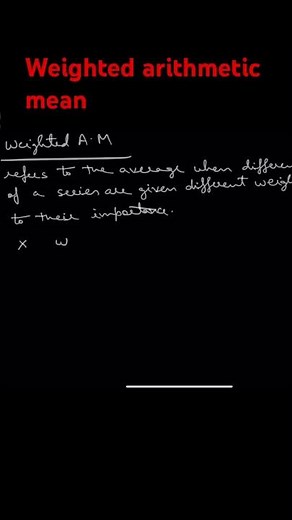 Weighted arithmetic
mean
Weighted A.M
refers to the average when differen
of a series are given different weigh
to their importance.
x w